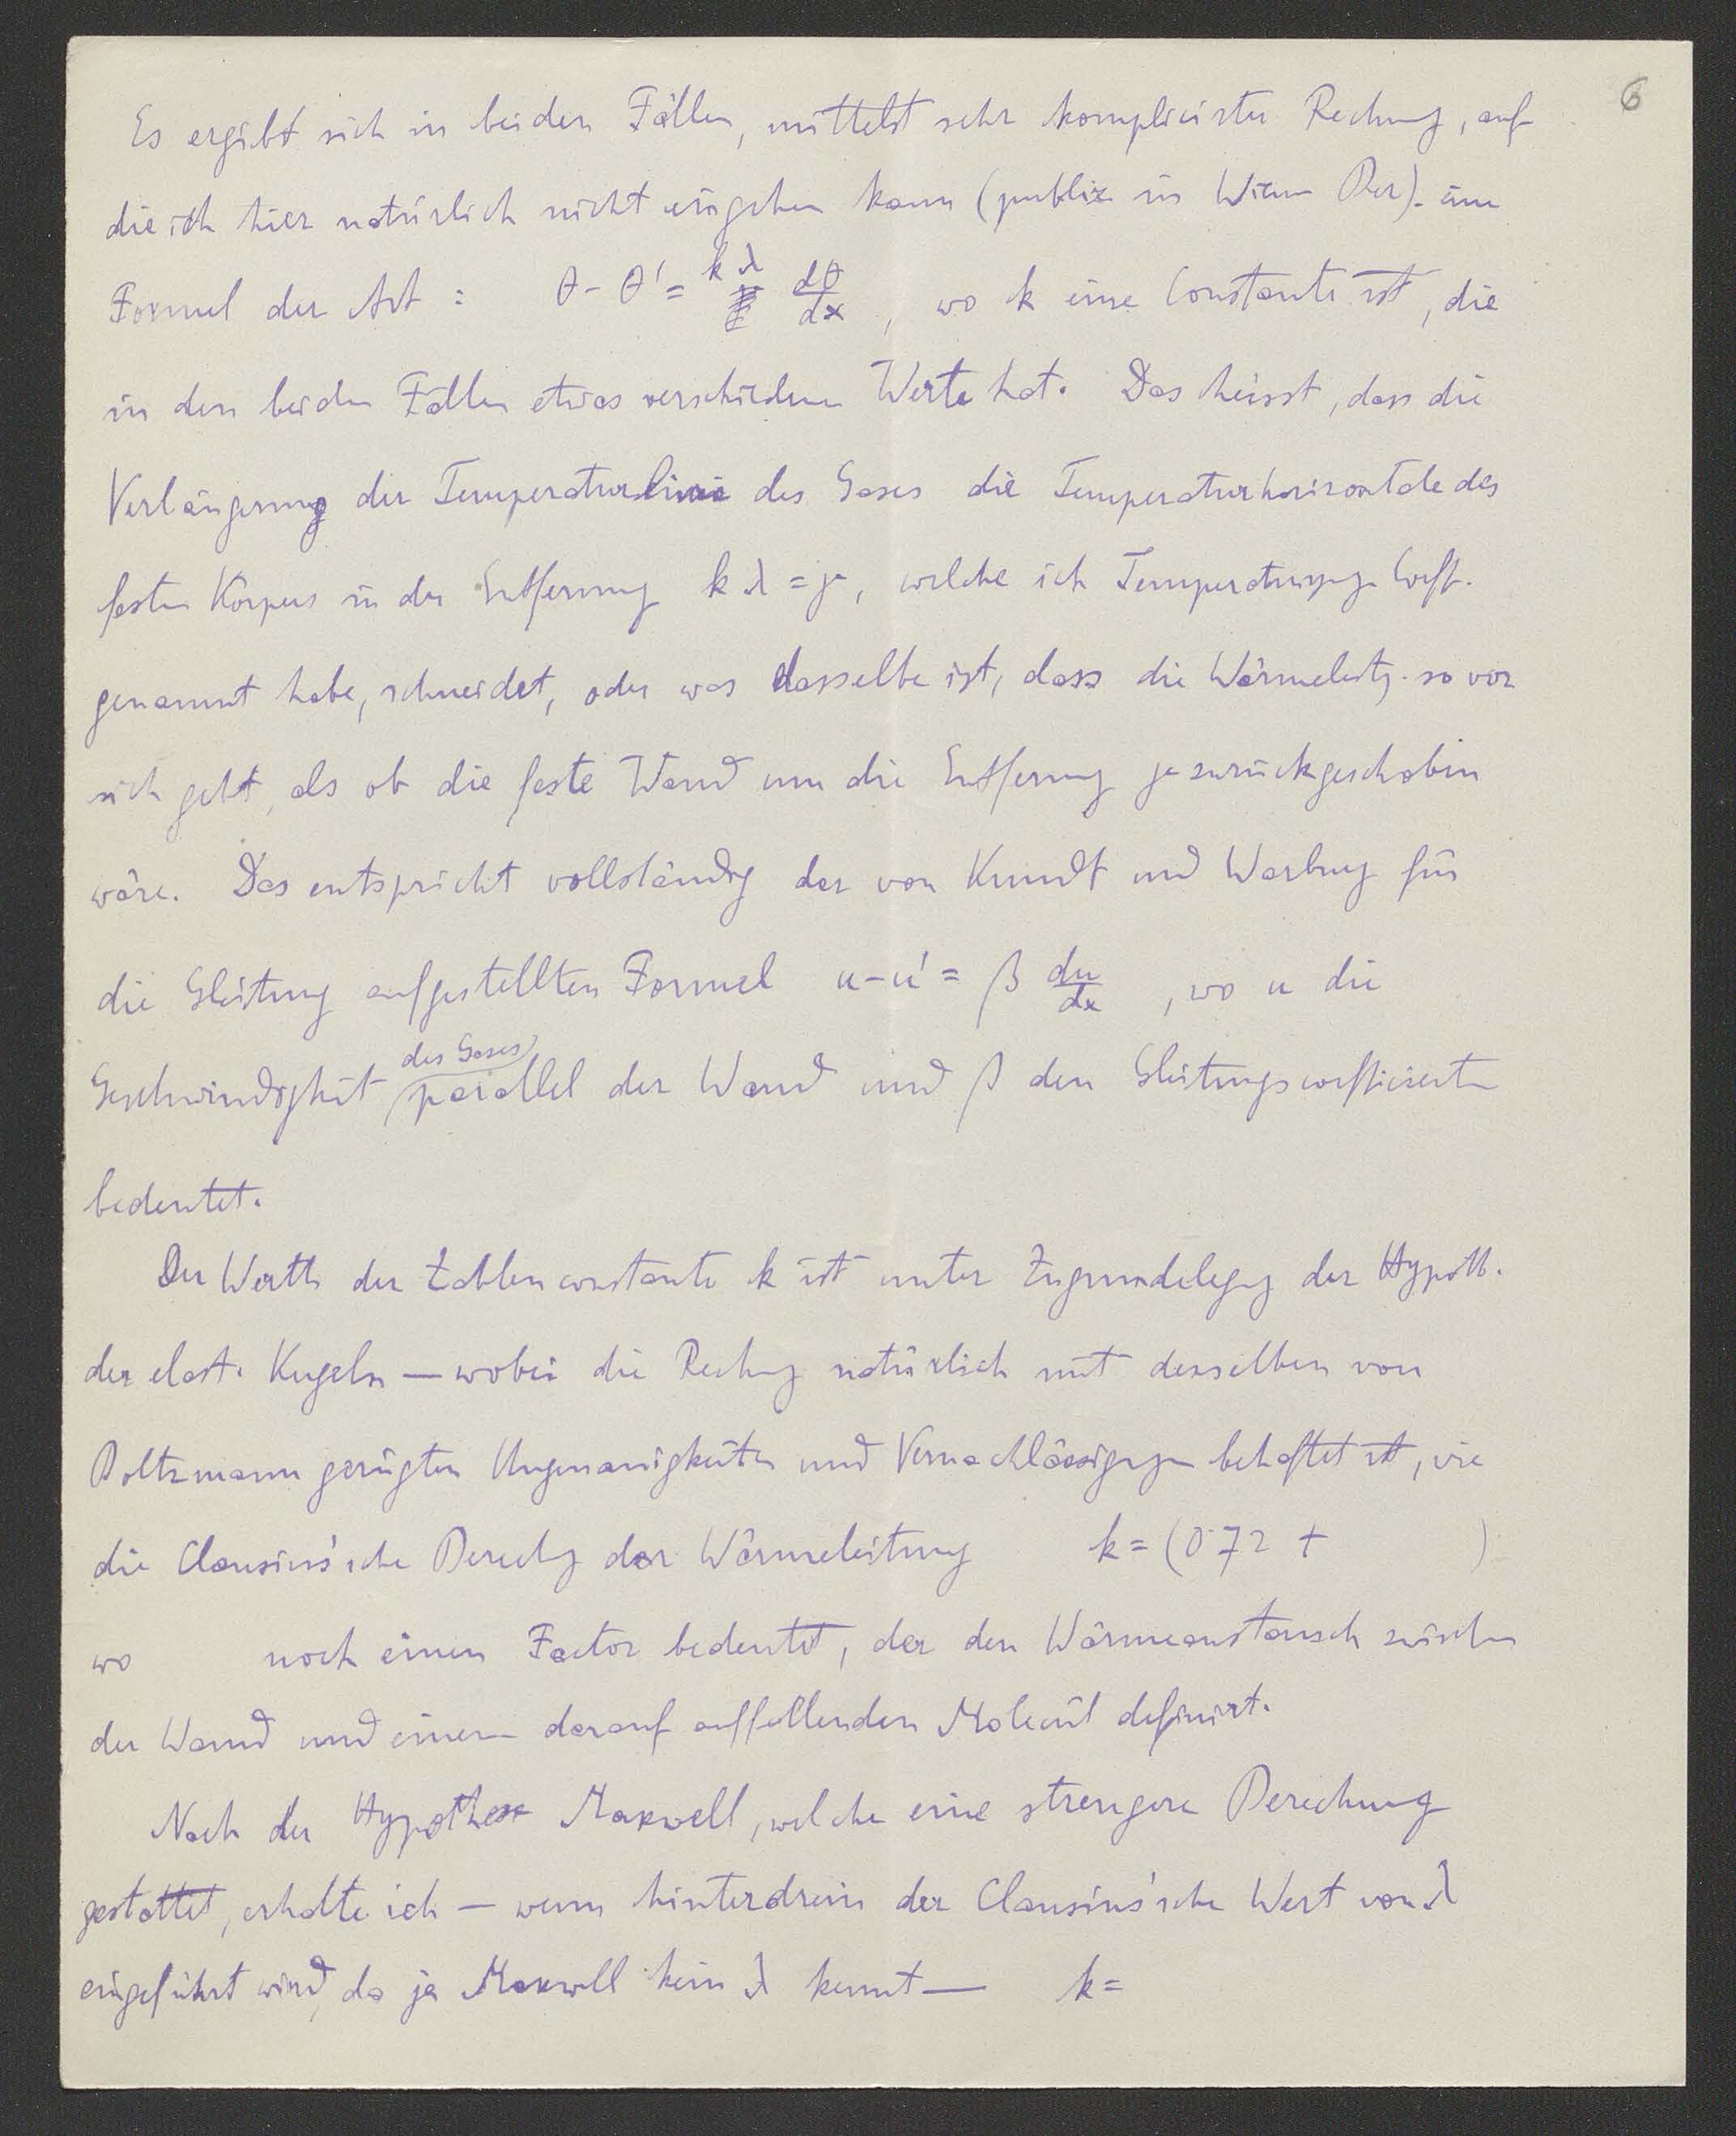 6
Es ergibt sich in beiden Fällen, mittelst sehr komplicirter Rechnung, auf
die ich hier natürlich nicht eingehen kann (publiz in Wien Ber). eine
Formel der Art : θ - θ' = kλ dθ/dx , wo k eine Constante ist, die
in den beiden Fällen etwas verschiedene Werte hat. Das heisst, dass die
Verlängerung der Temperaturlinie des Gases die Temperaturhorizontale des
festen Körpers in der Entfernung k λ = γ, welche ich Temperatursprg. Coeff.
genannt habe, schneidet, oder was dasselbe ist, dass die Wärmeleitg. so vor
sich geht, als ob die feste Wand um die Entfernung γ zurückgeschoben
wäre. Das entspricht vollständig der von Kundt und Warburg für
die Gleitung aufgestellten Formel u - u' = β du/dx , wo u die
Geschwindigkeit des Gases parallel der Wand und β den Gleitungscoefficienten
bedeutet.
Der Werth der Zahlenconstante k ist unter Zugrundelegg der Hypoth.
der elast. Kugeln — wobei die Rechng natürlich mit denselben von
Boltzmann gerügten Ungenauigkeiten und Vernachlässigungen behaftet ist, wie
die Clausius'sche Berechg der Wärmeleitung k = (0·72 + )
wo noch einen Factor bedeutet, der den Wärmeaustausch zwischen
der Wand und einem darauf auffallenden Molecül definirt.
Nach der Hypothese Maxwell, welche eine strengere Berechnung
gestattet, erhalte ich — wenn hinterdrein der Clausius'sche Wert von λ
eingeführt wird, da ja Maxwell kein λ kennt — k =